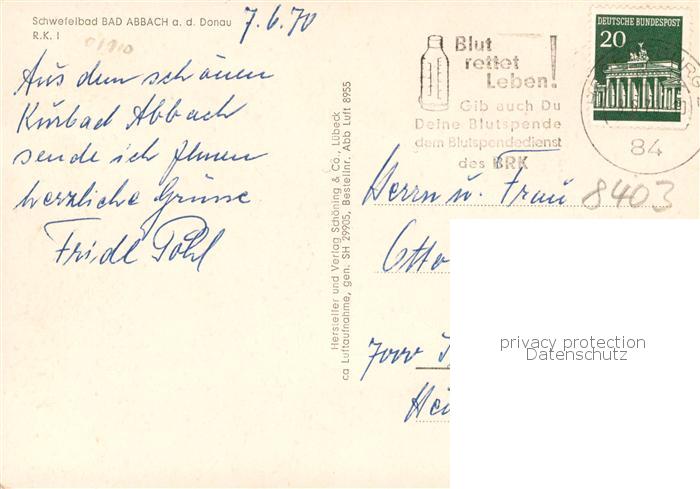 Schwefelbad BAD ABBACH a. d. Donau
R.K. I
7.6.70
Aus dem schönen
Kurbad Abbach
sende ich Ihnen
herzliche Grüsse
Fridl Pöhl
Hersteller und Verlag Schöning & Co., Lübeck
ca Luftaufnahme, gen. SH 29905, Bestellnr. Abb Luft 8955
Blut
rettet
Leben!
Gib auch Du
Deine Blutspende
dem Blutspendedienst
des BRK
DEUTSCHE BUNDESPOST
20
84
8403
Herrn u. Frau
Otto
7000
privacy protection
Datenschutz